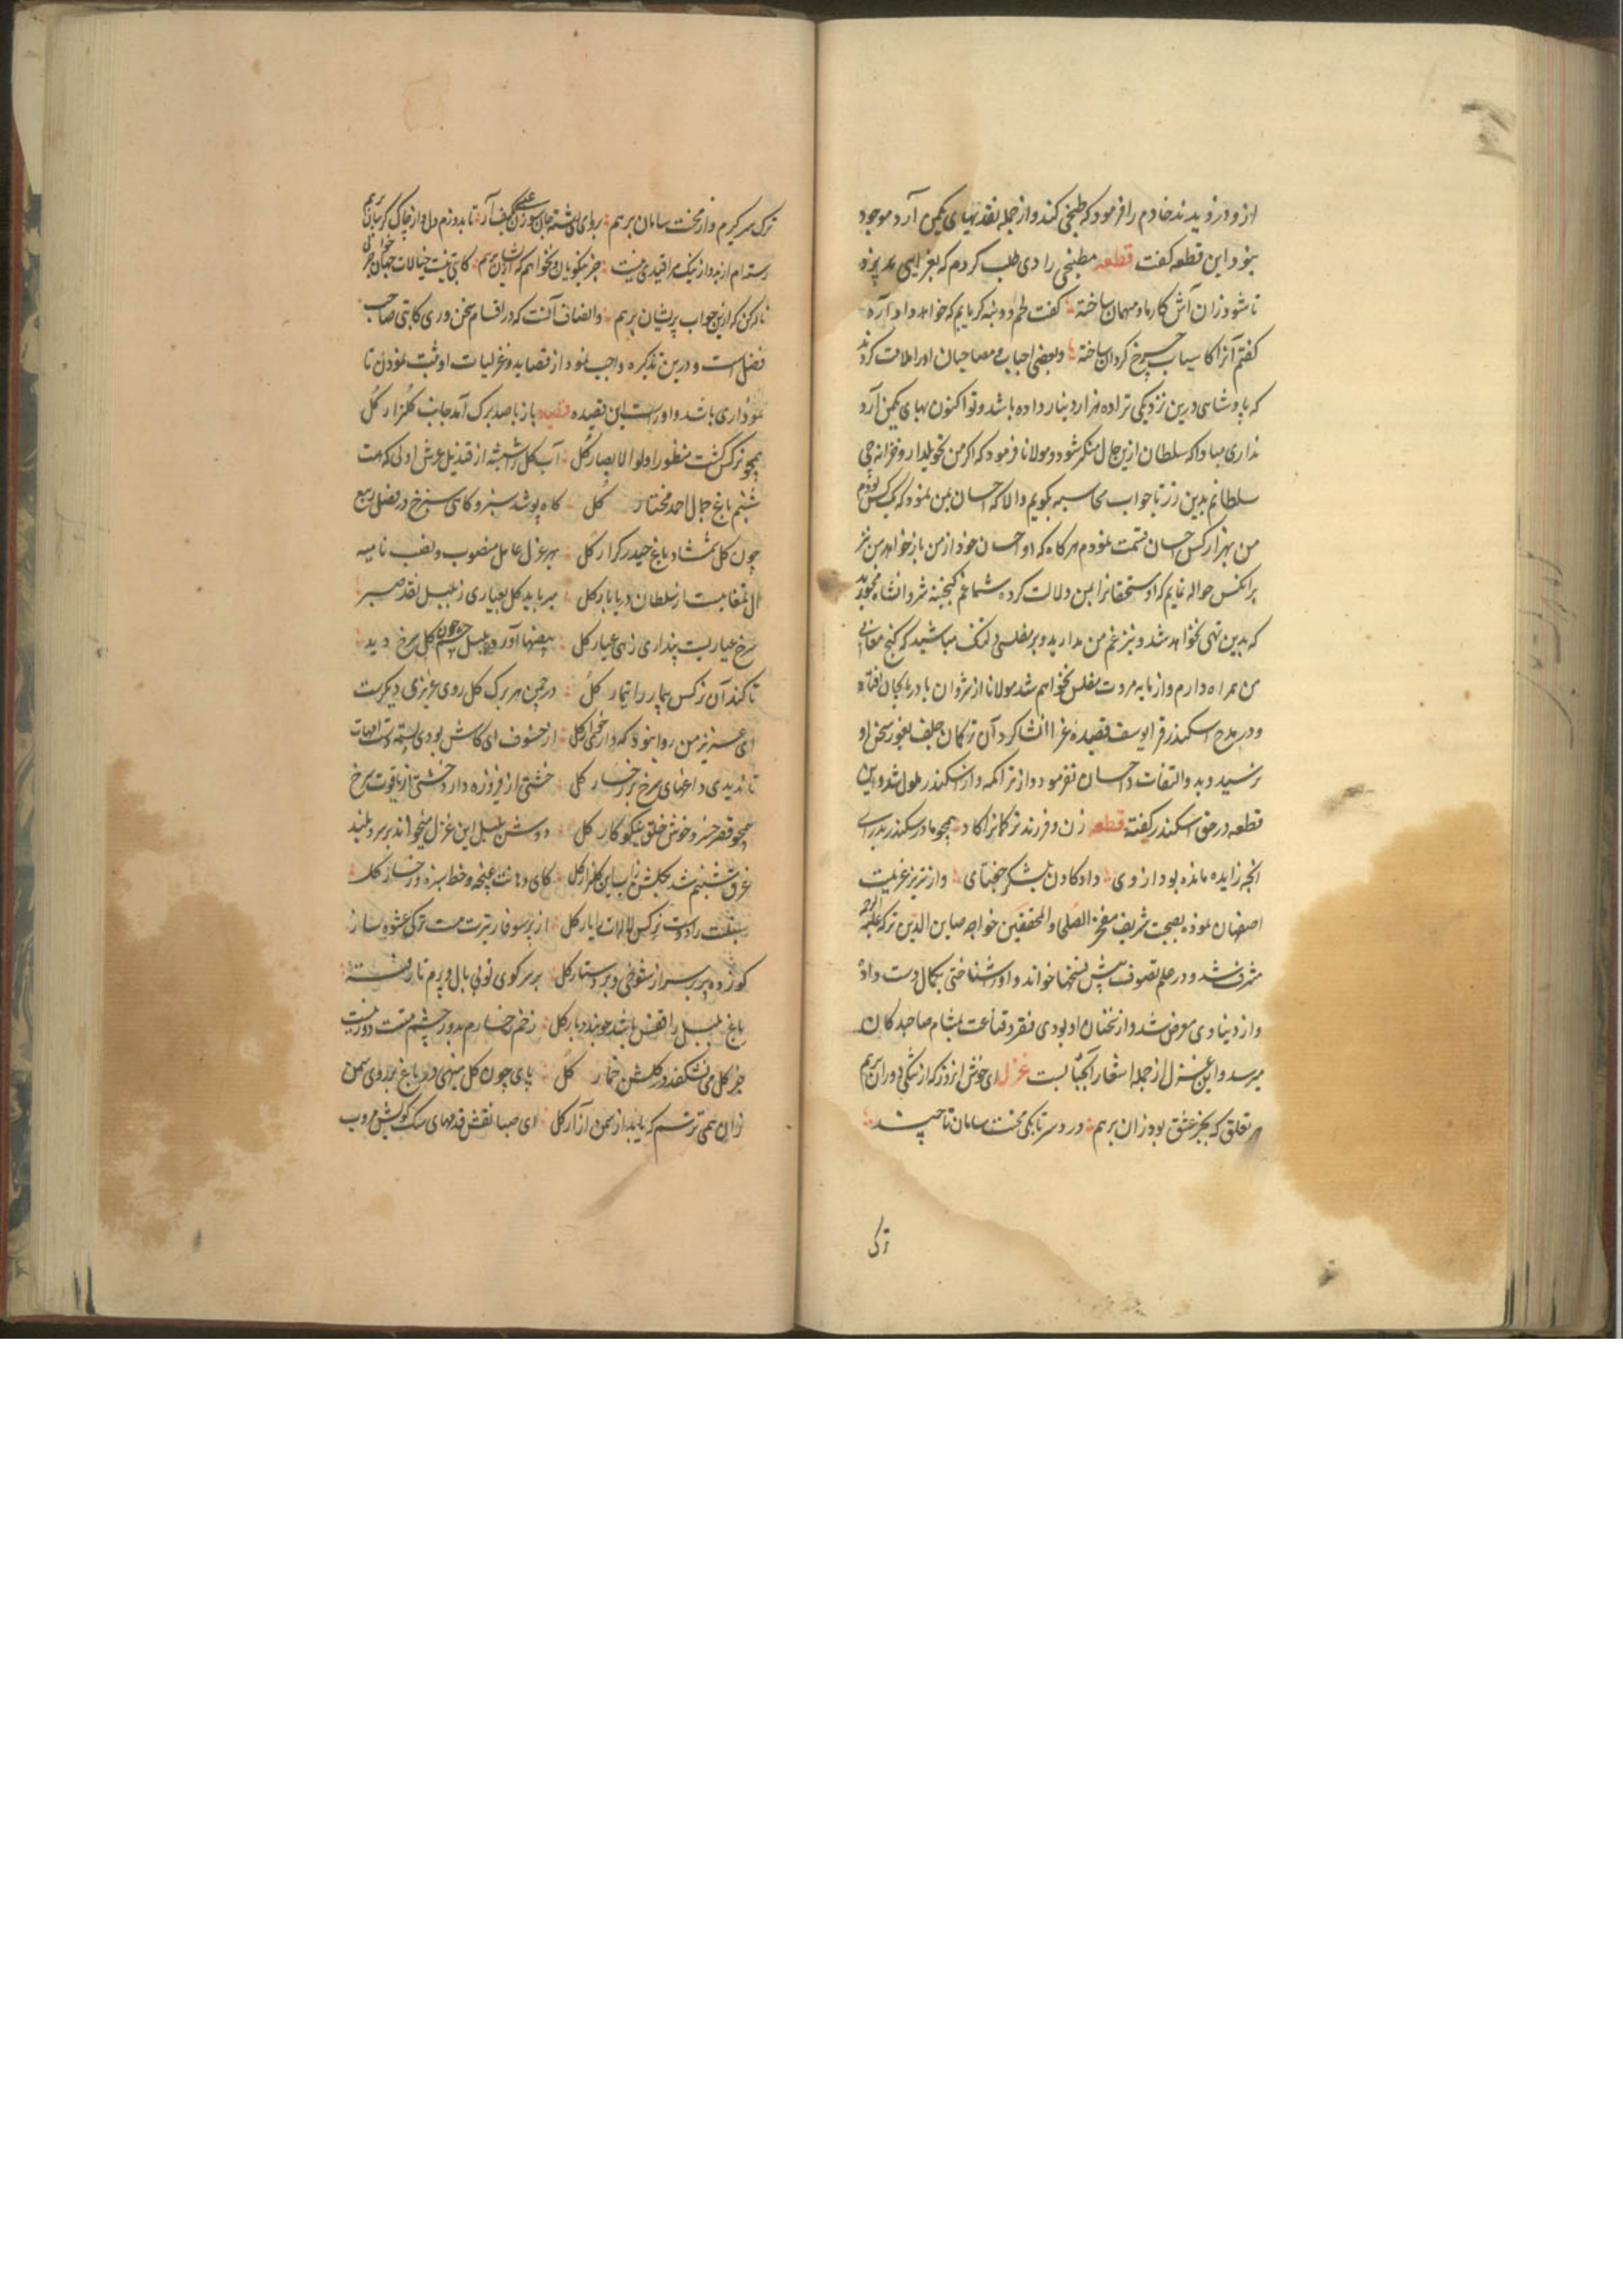 از و درزویدند خادم را فرمود که طبخی کند و از جمله نقد بهای یکمن آرد موجود
نبود این قطعه گفت قطعه مطبخی را دی طلب کردم که بغرایی پزد
تا شود زان آش کار ما و مهمان ساخته گفت لحم و دنبه گر یابم که خواهد داد آرد
گفتم آنرا کاسیاب چرخ گردان ساخته و بعضی احباب و مصاحبان او را ملامت کردند
که پادشاهی درین نزدیکی ترا ده هزار دینار داده باشد و تو اکنون بهای یکمن آرد
نداری مبادا که سلطان ازین حال منکر شود و مولانا فرمود که اگر من تحویلدار و خزانه چی
سلطانم بدین زر تا جواب محاسبه بگویم والا که احسان بمن نمود که یک کس بودم
من بهزار کس احسان قسمت نمودم هرگاه که او احسان خود از من باز خواهد من نیز
برانکس حواله نمایم که او مستحقانرا بمن دلالت کرده شما غم گنجینه شروانشاه مخورید
که بدین تهی نخواهد شد و نیز غم من مدارید و بر مفلسی دلتنگ مباشید که گنج معانی
من همراه دارم و از مایه مروت مفلس نخواهم شد مولانا از شروان بآذربایجان افتاد
و در مدح اسکندر قرا یوسف قصیده غرا انشا کرد آن ترکمان جلف بغور سخن او
نرسید و بدو التفات و احسان نفرمود و از تراکمه و از اسکندر ملول شد و این
قطعه در حق اسکندر گفته قطعه زن و فرزند ترکمانرا کاد همچو مادر سکندر بدرای
انچه زاییده مانده بود از وی داد کادن بلشکر جغتای و از تبریز عزیمت
اصفهان نموده بصحبت شریف مفخر الصلحا والمحققین خواجه صاین الدین ترکه علیه الرحمه
مشرف شد و در علم تصوف پیش نسخها خواند و او را شناختی بکمال دست داد
و از دنیاوی معرض شد و از سخنان او بوی فقر و قناعت بمشام صاحبدلان
میرسد و این غزل از جمله اشعار آنجناب است غزل ای خوش انروز که از تنگی دوران برهم
تعلق که بجز عشق بود زان برهم درد سر تا بکی محنت سامان تا چند
ترک
ترک سر گیرم و از محنت سامان برهم برو ای رشته جان سوزن عیسی بکف آر تا بدوزم دل و از چاک گریبان برهم
رسته ام از بد و از نیک مرا قیدی نیست جز نکویان و نخواهم که ازیشان برهم کاتبی نیست خیالات جهان جز خوابی
ناله کن که ازین خواب پریشان برهم و انصاف آنست که در اقسام سخن وری کاتبی صاحب
فضل است و درین تذکره واجب نمود از قصاید و غزلیات او ثبت نمودن تا
نموداری باشد و او راست این قصیده قصیده باز با صد برگ آمد جانب گلزار گل
همچو نرگس گشت منظور اولوا الابصار گل آب گل را شیشه از قندیل عرش اولی که هست
شبنم باغ جمال احمد مختار گل کاه پوشد سبز و گاهی سرخ در فصل ربیع
چون گل شمشاد باغ حیدر کرار گل بهر عزل عامل منصوب و نصب نامیه
آل تمغاییست از سلطان دریا بار گل میرباید گل بعیاری ز بلبل نقد صبر
سرخ عیاریست پنداری زهی عیار گل بیضها آورد بلبل چون چشم گل سرخ دید
تا کند آن نرگس بیمار را تیمار گل در چمن هر برگ گل روی عزیزی دیگرست
ای عزیز من روا نبود که داری خوار گل از خسوف ای کاش بودی بسته دست امهات
تا ندیدی داغهای سرخ بر رخسار گل خشتی از فیروزه دارد خشتی از یاقوت سرخ
همچو قصر خسرو خوش خلق نیکو کار گل دوش بلبل این غزل میخواند بر سرو بلند
غرق شبنم شد بگلشن زاب این گلزار گل کای دهانت غنچه و خط سبزه و رخسار گل
سنبلت را دوست نرگس لاله ات را یار گل از پر سوفار تیرت مست ترکی عشوه ساز
کو زده پر بر سر از شوخی و بر دستار گل بر سر کوی تو بی بال و پرم نا رفته
باغ بلبل را قفس باشد چو بندد بار گل زخم رخسارم بدور چشم مستت دور نیست
جز گل می نشکفد در گلشن خمار گل پای چون گل مینهی در باغ بر روی سمن
زان همی ترسم که یابد از سمن آزار گل ای صبا نقش قدمهای سگ کویش مروب